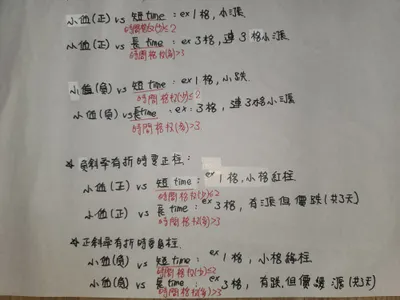 小值(正) vs 短time : ex 1格,小漲
時間格位(少)≤2
小值(正) vs 長time : ex 3格, 連3格小漲
時間格位(多)>3
小值(負) vs 短time : ex 1格,小跌
時間格位(少)≤2
小值(負) vs 長time : ex: 3格, 連3格小漲
時間格位(多)>3
* 負斜率有折時要正柱:
小值(正) vs 短time : ex 1格,小格紅柱
時間格位(少)≤2
小值(正) vs 長time : ex 3格, 有漲但價跌(共3天)
時間格位(多)>3
*正斜率有折時要負柱
小值(負) vs 短time : ex 1格, 小格綠柱
時間格位(少)≤2
小值(負) vs 長time : ex 3格, 有跌,但價續漲(共3天)
時間格位(多)>3